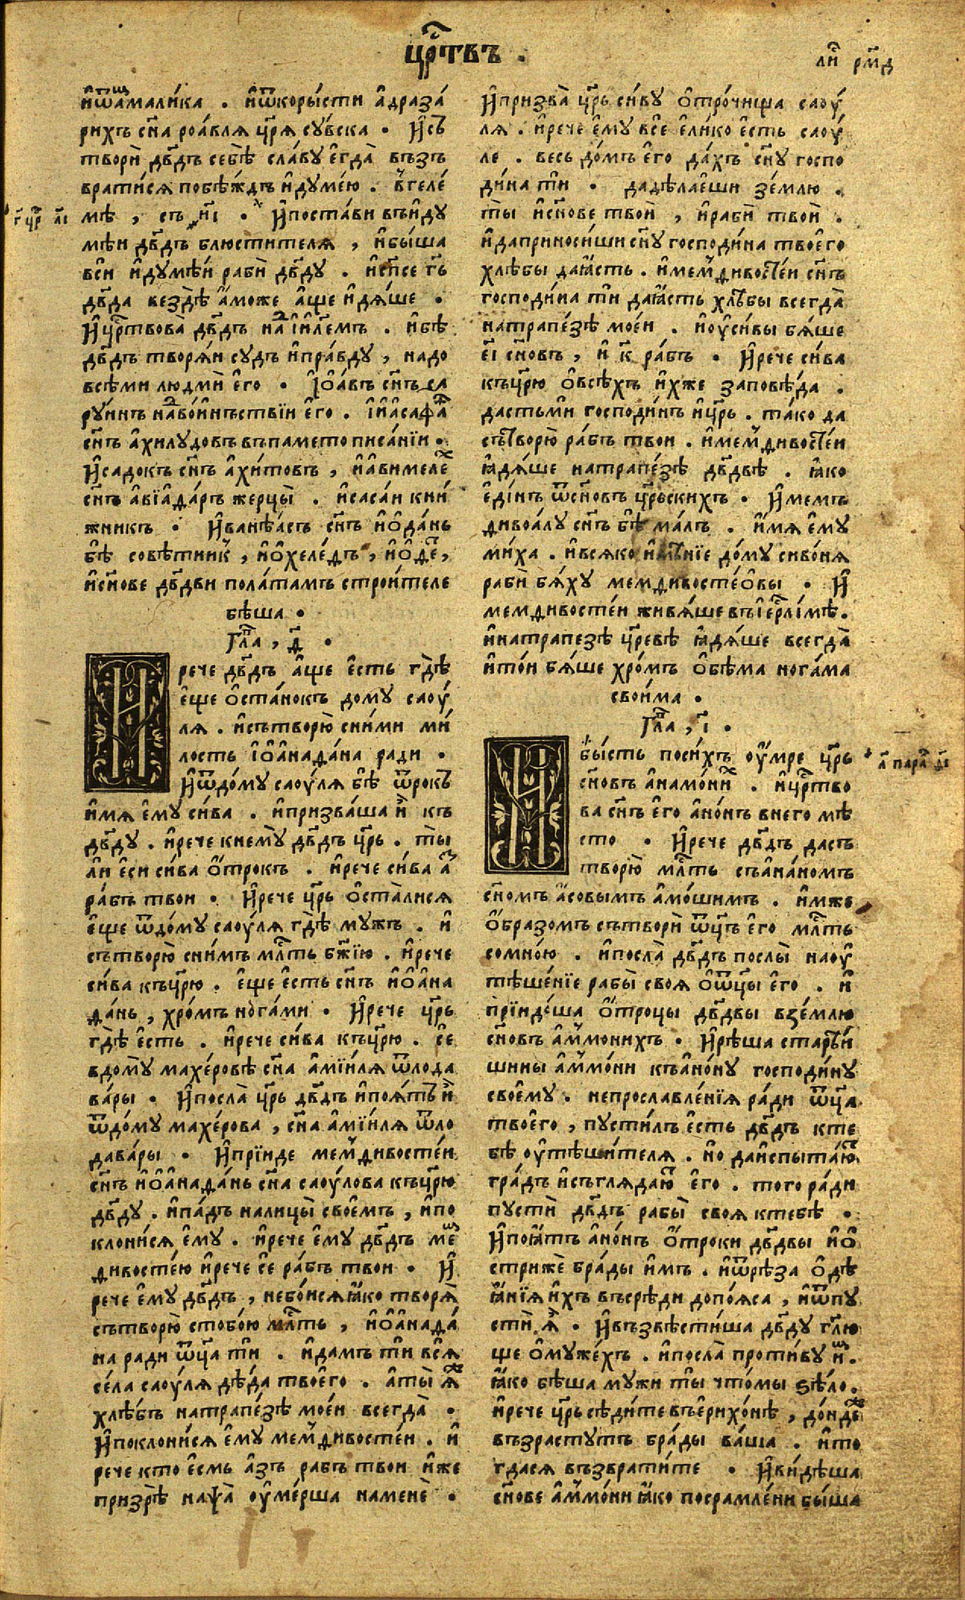 црⷭ҇твъ .
ли҇ рм҃д
и҆ѿа҆мали́ка . и҆ѿкоры́сти а҆драза́
рихъ сн҃а роа́вля цр҃я су́вска . И҆съ
творѝ дв҃дъ себѣ̀ сла́ву є҆гда̀ възъ
врати́ся побѣ́ждъ и҆думе́ю . в̾геле́
мѣ , съ и҃і . И҆поста́ви въи҆ду
мѣ́и дв҃дъ блюсти́теля , и҆бы́ша
вси̑ и҆думѣ́и рабѝ дв҃ду . и҆сп҃се гь҃
дв҃да вездѣ̀ а҆́може а҆́ще и҆дя́ше .
И҆црⷭ҇твова̀ дв҃дъ на і҆и҃лемъ . и҆бѣ̀
дв҃дъ творя́и судъ и҆пра́вду , надо
всѣ́ми людмѝ є҆го̀ . І҆ѡа́въ сн҃ъ са
ру́инъ надво́инъствїи є҆го̀ . І҆и҆асафа́тъ
сн҃ъ а҆хилудовъ въпамето писа́нїи .
И҆садокъ сн҃ъ а҆хи́товъ , и҆а҆вимелеⷯ
сн҃ъ а҆вїа҆да́ръ жерцы̀ . и҆саса́и кни́
жникъ . И҆ване́асъ сн҃ъ и҆ѻ҆да́нь
бѣ̀ совѣ́тникъ , и҆ѻ҆хеле́дъ , и҆ѻ҆деⷮ ,
и҆сн҃ове дв҃дви пола́тамъ строи́теле
бѣша .
Глаⷡ҇ , д҃ .
И рече дв҃дъ а҆́ще є҆́сть гдѣ̀
є҆ще ѻ҆ста́нокъ дому саоу́
ля . и҆сътворю̀ сни́ми ми́
лость і҆ѻ҆анада́на ради .
И҆ѿдо́му саоу́ля бѣ̀ ѻ҆трокъ
и҆мя є҆му̀ си́ва . и҆призва́ша и҆̀ къ
дв҃ду . и҆рече́ кнему̀ дв҃дъ цр҃ь . ты̀
ли є҆си си́ва ѻ҆трокъ . и҆рече си́ва а҆́зъ
ра́бъ твои . И҆рече цр҃ь ѻ҆ста́лися
є҆ще ѿдо́му саоу́ля гдѣ̀ мужъ . и҆
сътворю̀ сни́мъ млⷭ҇ть бж҃їю . и҆рече
си́ва къцр҃ю . є҆ще є҆сть сн҃ъ и҆ѻ҆а҆на
да́нь , хро́мъ нога́ми . И҆рече цр҃ь
гдѣ̀ є҆сть . и҆рече си́ва къцр҃ю . сѐ
вдо́му махе́ровѣ сн҃а а҆мїиля ѿлода
ва́ры . И҆посла̀ цр҃ь дв҃дъ и҆поя́тъ и҆̀
ѿдо́му махе́рова , сн҃а а҆мїиля ѿло
дава́ры . И҆прїиде мемⷴ҇дивосте́и
сн҃ъ и҆ѻ҆а҆нада́нь сн҃а саоу́лова къцр҃ю
дв҃ду . и҆па́дъ налицы̀ свое́мъ , и҆по
клони́ся є҆му . и҆рече є҆му дв҃дъ меⷨ
дивосте́ю и҆рече сѐ ра́бъ твои . И҆
рече є҆му дв҃дъ , небо́ися ꙗ҆́ко творя̀
сътворю̀ стобо́ю млⷭ҇ть , и҆ѻ҆а҆нада́
на ради ѿц҃а ти . и҆дамъ ти всѧ̀
се́ла саоу́ля дѣ́да твоего . а҆ты̀ ꙗ҆́жⷣь
хлѣ́бъ натрапе́зѣ мое́и всегда̀ .
И҆поклони́ся є҆му мемⷴ҇дивосте́и . и҆
рече кто є҆смь а҆зъ рабъ твои и҆́же
призрѣ̀ напса̀ оу҆ме́рша наменѐ .
И҆призва̀ цр҃ь си́ву ѻ҆тро́чища саоу́
ля . и҆рече є҆му всѐ є҆ли́ко є҆сть саоу́
ле . весь до́мъ є҆го да́хъ сн҃у госпо
ди́на тѝ . дадѣ́лаеши зе́млю .
ты̀ и҆сн҃ове твои̑ , и҆рабѝ твои̑ .
и҆даприноси́ши сн҃у господи́на твоего
хлѣ́бы даꙗ҆́сть . и҆мемⷴ҇дивосте́и сн҃ъ
господи́на ти даꙗ҆́сть хлѣ́бы всегда̀
натрапе́зѣ мое́и . и҆оу҆си́вы бя́ше
є҃і сн҃овъ , и҆ к҃ ра́бъ . И҆рече си́ва
къцр҃ю ѻ҆всѣ́хъ и҆́хже заповѣ́да .
дастьми́ господи́нъ и҆цр҃ь . та́ко да
сътворю̀ ра́бъ твои . и҆мемⷴ҇дивосте́и
ꙗ҆дя́ше натрапе́зѣ дв҃двѣ . ꙗ҆́ко
є҆ди́нъ ѿсн҃овъ цр҃ьскихъ . И҆мемъ
дивоа́лу сн҃ъ бѣ̀ ма́лъ . и҆́мя є҆му
ми́ха . и҆всяко и҆мѣ́нїе до́му сиво́ня
рабѝ бя́ху мемдивосте́ѻвы . И҆
мемдивосте́и живя́ше въіе҆рⷭ҇ли́мѣ .
и҆натрапезѣ цр҃евѣ ꙗ҆дя́ше всегда̀
и҆то́и бя́ше хро́мъ ѻ҆бѣма нога́ма
свои́ма .
Глаⷡ҇ , і҃ .
И бы́сть поси́хъ оу҆́мре цр҃ь
сн҃овъ а҆намо́ниⷯ . и҆црⷭ҇тво
ва сн҃ъ его а҆но́нъ внего мѣ
сто . И҆рече дв҃дъ дасъ
творю̀ млⷭ҇ть съа҆на́номъ
сн҃омъ а҆́совымъ а҆мо́шимъ . и҆́мже
ѻ҆́бразомъ сътворѝ ѿц҃ъ его млⷭ҇ть
сомно́ю . и҆посла̀ дв҃дъ послы̀ наоу҆
тѣше́нїе рабы̀ своя ѻ҆ѿц҃ы его . и҆
прїидо́ша ѻ҆́троцы дв҃двы взе́млю
сн҃овъ а҆м̾мо́нихъ . И҆рѣ́ша старѣ́и
шины а҆м̾мо́ни къа҆но́ну господи́ну
своему . непрославле́нїя ра́ди ѿц҃а
твоего , пусти́лъ є҆сть дв҃дъ кте
бѣ̀ оу҆тѣши́теля . но даи҆спыта́ютъ
гра́дъ и҆съгляда́ютъ его . того ра́ди
пустѝ дв҃дъ рабы̀ своя ктебѣ̀ .
И҆поꙗ҆́тъ а҆но́нъ ѻ҆́троки дв҃двы и҆ѻ҆
стриже брады̀ и҆мъ . и҆ѿрѣ́за ѻ҆дѣ
ꙗ҆́нїя и҆́хъ въсре́ди допо́яса , и҆ѿпу
стѝ ꙗ҆̀ . И҆възвѣсти́ша дв҃ду гл҃ю
ще ѻ҆муже́хъ . и҆посла̀ проти́ву и҆́мъ .
ꙗ҆́ко бѣ́ша мужи ты̀ что́мы ѕѣло̀ .
и҆рече цр҃ь сѣди́те въерихо́нѣ , до́ндеⷤ
възрасту́тъ брады̀ ва́ша . и҆то
гдася възврати́те . И҆ви́дѣша
сн҃ове а҆м̾мо́ни ꙗ҆́ко посрамле́ни бы́ша